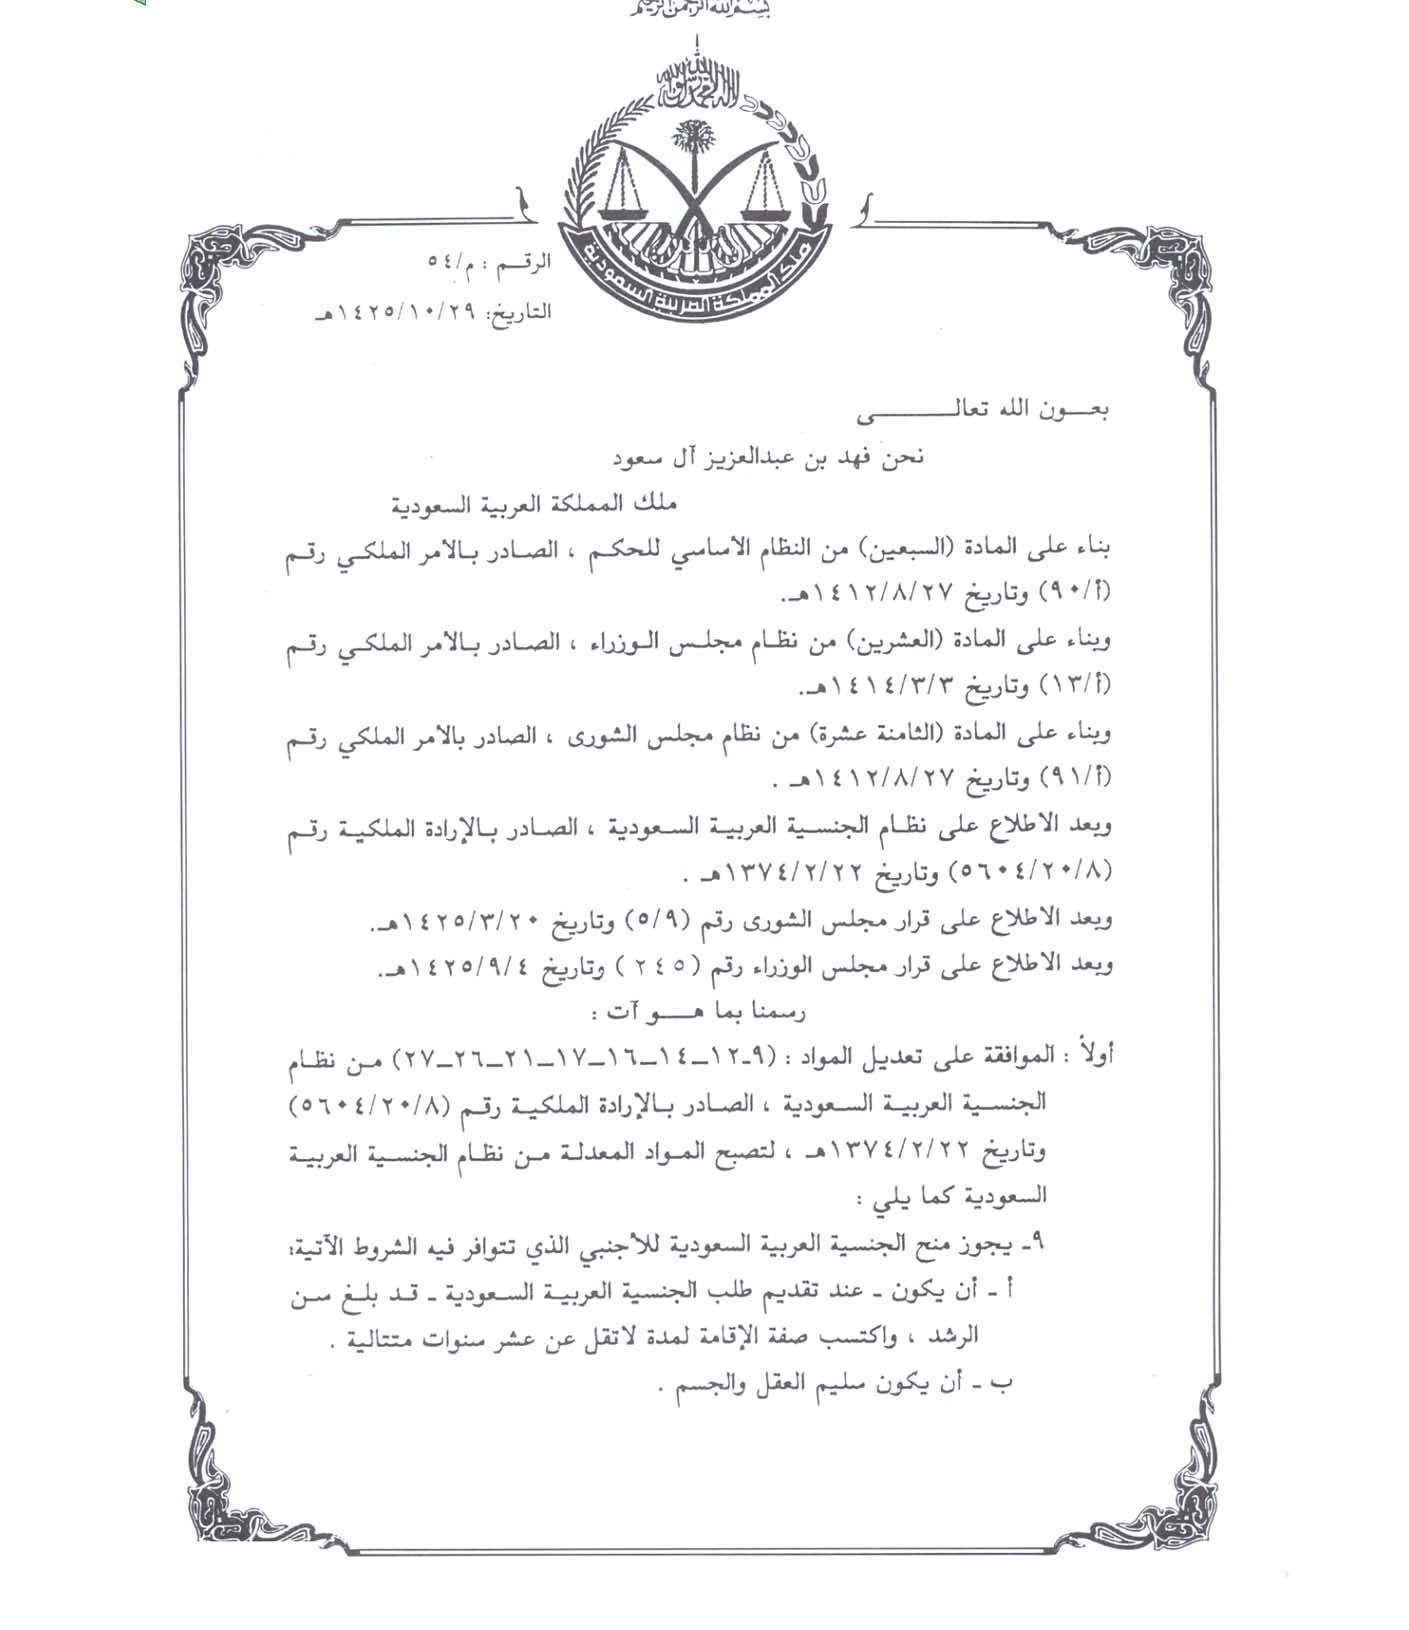 بسم الله الرحمن الرحيم
لا إله إلا الله محمد رسول الله
ملك المملكة العربية السعودية
الرقـم : م/٥٤
التاريخ: ١٤٢٥/١٠/٢٩هـ
بعـــون الله تعالــــــــى
نحن فهد بن عبدالعزيز آل سعود
ملك المملكة العربية السعودية
بناء على المادة (السبعين) من النظام الاساسي للحكم ، الصادر بالامر الملكي رقم
(أ/٩٠) وتاريخ ١٤١٢/٨/٢٧هـ.
وبناء على المادة (العشرين) من نظام مجلس الوزراء ، الصادر بالامر الملكي رقم
(أ/١٣) وتاريخ ١٤١٤/٣/٣هـ.
وبناء على المادة (الثامنة عشرة) من نظام مجلس الشورى ، الصادر بالامر الملكي رقم
(أ/٩١) وتاريخ ١٤١٢/٨/٢٧هـ .
وبعد الاطلاع على نظام الجنسية العربية السعودية ، الصادر بالإرادة الملكية رقم
(٥٦٠٤/٢٠/٨) وتاريخ ١٣٧٤/٢/٢٢هـ .
وبعد الاطلاع على قرار مجلس الشورى رقم (٥/٩) وتاريخ ١٤٢٥/٣/٢٠هـ.
وبعد الاطلاع على قرار مجلس الوزراء رقم (٢٤٥) وتاريخ ١٤٢٥/٩/٤هـ.
رسمنا بما هـــو آت :
أولاً : الموافقة على تعديل المواد : (٩ـ١٢ـ١٤ـ١٦ـ١٧ـ٢١ـ٢٦ـ٢٧) من نظام
الجنسية العربية السعودية ، الصادر بالإرادة الملكية رقم (٥٦٠٤/٢٠/٨)
وتاريخ ١٣٧٤/٢/٢٢هـ ، لتصبح المواد المعدلة من نظام الجنسية العربية
السعودية كما يلي :
٩ـ يجوز منح الجنسية العربية السعودية للأجنبي الذي تتوافر فيه الشروط الآتية:
أ ـ أن يكون ـ عند تقديم طلب الجنسية العربية السعودية ـ قد بلغ سن
الرشد ، واكتسب صفة الإقامة لمدة لاتقل عن عشر سنوات متتالية .
ب ـ أن يكون سليم العقل والجسم .